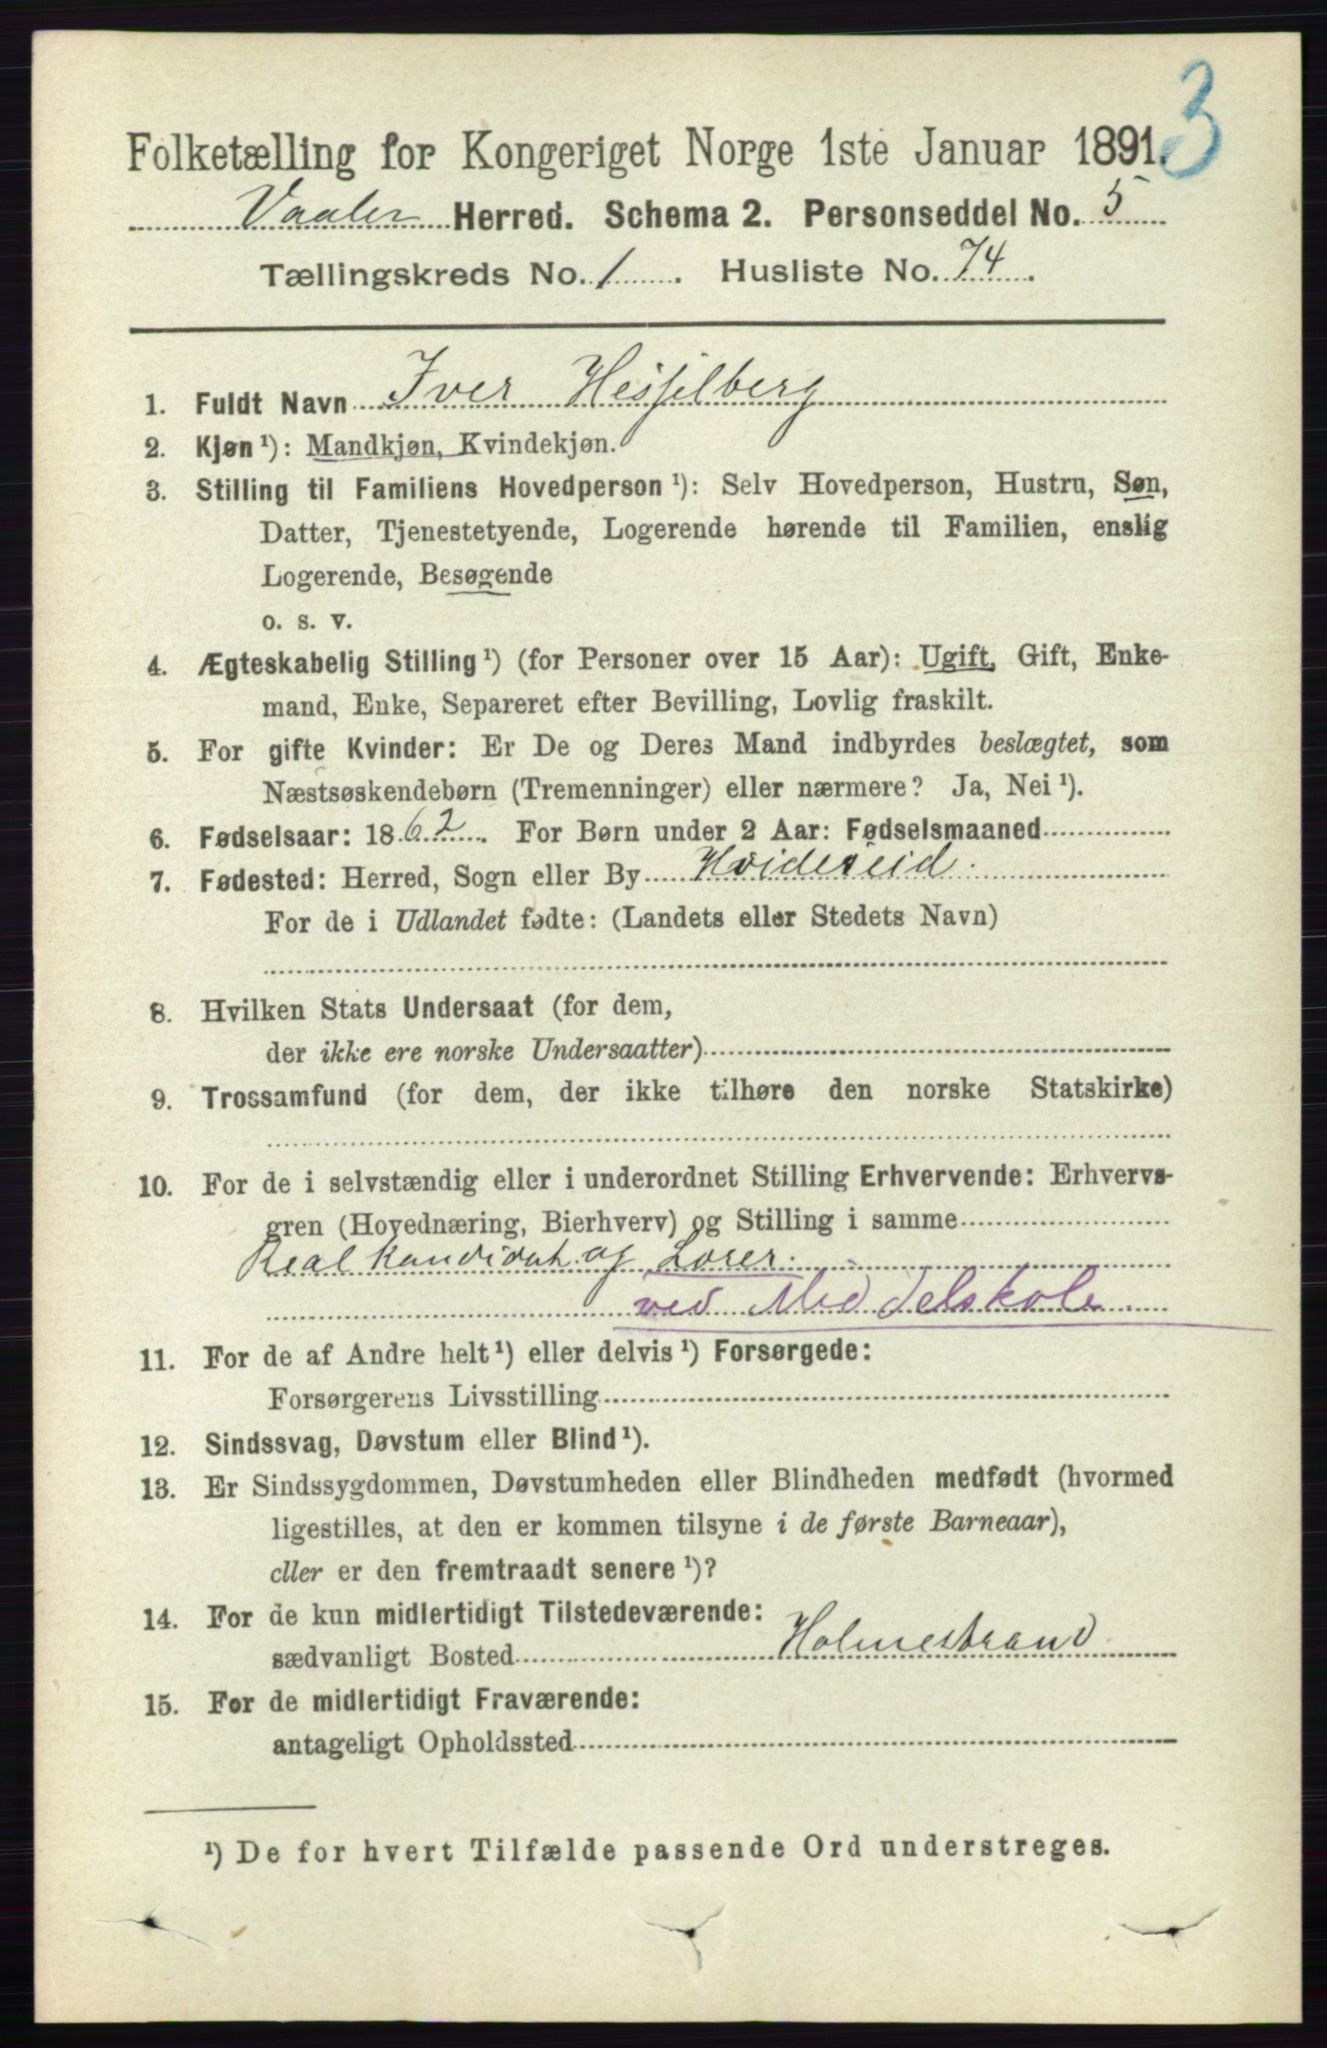 3
Folketælling for Kongeriget Norge 1ste Januar 1891.
Vaaler Herred. Schema 2. Personseddel No. 5
Tællingskreds No. 1. Husliste No. 74.
1. Fuldt Navn Iver Hesselberg
2. Kjøn ¹): Mandkjøn, Kvindekjøn.
3. Stilling til Familiens Hovedperson ¹): Selv Hovedperson, Hustru, Søn,
Datter, Tjenestetyende, Logerende hørende til Familien, enslig
Logerende, Besøgende
o. s. v.
4. Ægteskabelig Stilling ¹) (for Personer over 15 Aar): Ugift, Gift, Enke-
mand, Enke, Separeret efter Bevilling, Lovlig fraskilt.
5. For gifte Kvinder: Er De og Deres Mand indbyrdes beslægtet, som
Næstsøskendebørn (Tremenninger) eller nærmere? Ja, Nei ¹).
6. Fødselsaar: 1862. For Børn under 2 Aar: Fødselsmaaned
7. Fødested: Herred, Sogn eller By Hvideseid.
For de i Udlandet fødte: (Landets eller Stedets Navn)
8. Hvilken Stats Undersaat (for dem,
der ikke ere norske Undersaatter)
9. Trossamfund (for dem, der ikke tilhøre den norske Statskirke)
10. For de i selvstændig eller i underordnet Stilling Erhvervende: Erhvervs-
gren (Hovednæring, Bierhverv) og Stilling i samme
Realkandidat og Lærer.
ved Middelskole.
11. For de af Andre helt ¹) eller delvis ¹) Forsørgede:
Forsørgerens Livsstilling
12. Sindssvag, Døvstum eller Blind ¹).
13. Er Sindssygdommen, Døvstumheden eller Blindheden medfødt (hvormed
ligestilles, at den er kommen tilsyne i de første Barneaar),
eller er den fremtraadt senere ¹)?
14. For de kun midlertidigt Tilstedeværende:
sædvanligt Bosted Holmestrand
15. For de midlertidigt Fraværende:
antageligt Opholdssted
¹) De for hvert Tilfælde passende Ord understreges.